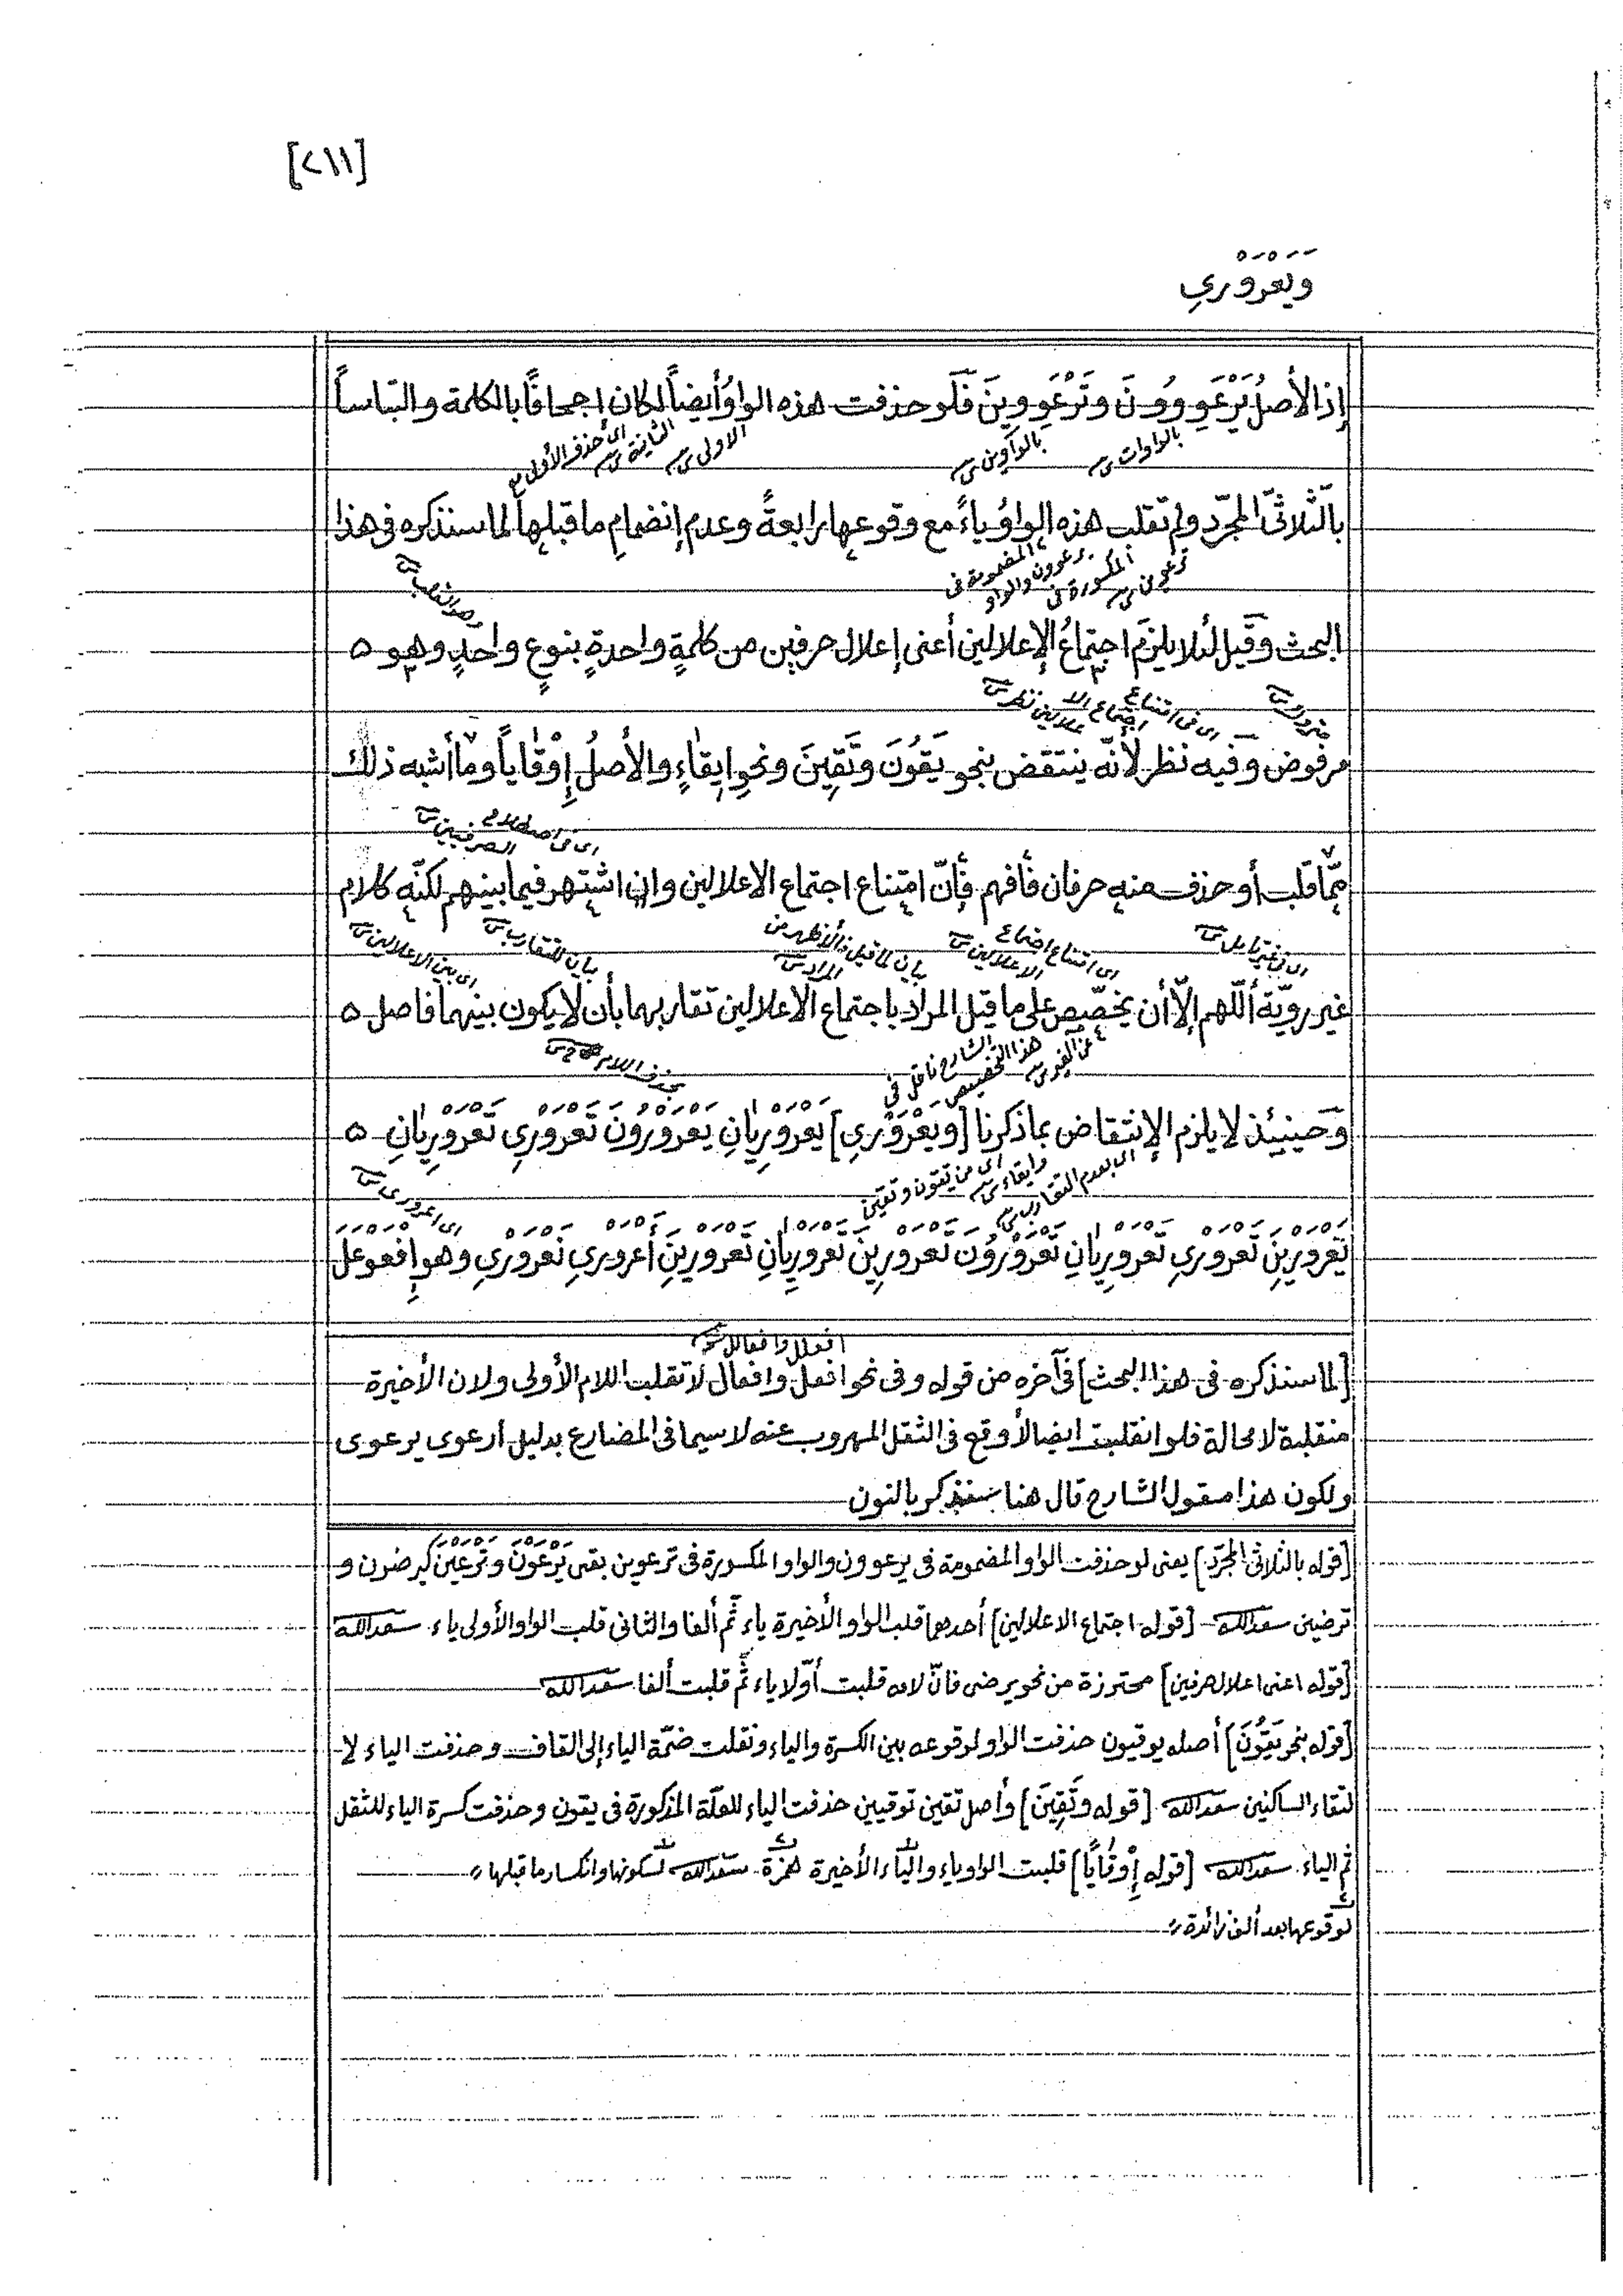 [٢١١]
وَيَعْرَوْرِي
إذ الأصلُ يَرْعَوِوُونَ وتَرْعَوِوِينَ فَلَو حذفت هذه الواوُ أيضاً لكان اجحافًا بالكلمة والتباساً
بالواوات
بالواوين
الاولى
الثانية
اى حذف الأولى
بالثّلاثىّ المجرّد ولم تقلب هذه الواوُ ياءً مع وقوعها رابعةً وعدم إنضمامِ ما قبلها لما سنذكره فى هذا
ترعوين
المكسورة فى
يرعوون والواو
المضمومة فى
البحث وقيل لئلا يلزم اجتماعُ الإعلالين أعنى إعلال حرفين من كلمةٍ واحدةٍ بنوعٍ واحدٍ وهو ٥
متروك
اى فى امتناع
اجتماع الا
علالين نظر
مرفوض وفيه نظر لأنّه ينتقض بنحو يَقُونَ وتَقِينَ ونحوِ ايقاءٍ والأصلُ إِوْقاياً وما أشبه ذلك
اى فى اصطلاح
الصرفيين
ممّا قلب أو حذف منه حرفان فافهم فإنّ امتناع اجتماع الاعلالين وان اشتهر فيما بينهم لكنّه كلام
اى امتناع اجتماع
الاعلالين
بيان لما قيل
المراد
بيان للتقارب
اى بين الاعلالين
غير رويّة أللّهم إلاّ أن يخصّص على ما قيل المراد باجتماع الاعلالين تقاربهما بأن لا يكون بينهما فاصل ٥
هذا التخصيص
الشارح ناقل فى
بحذف اللام
وحينئذ لا يلزم الإنتقاض بما ذكرنا [ويَعْرَوْرِي] يَعْرَوْرِيَانِ يَعْرَوْرُونَ تَعْرَوْرِي تَعْرَوْرِيَانِ ٥
اى بعدم التقارب
وايقاء
اى من يقون وتقين
اى اعرورى
يَعْرَوْرِينَ تَعْرَوْرِي تَعْرَوْرِيَانِ تَعْرَوْرُونَ تَعْرَوْرِينَ تَعْرَوْرِيَانِ تَعْرَوْرِينَ أَعْرَوْرِي نَعْرَوْرِي وهو اِفْعَوْعَلَ
افعلل وافعالل
[لما سنذكره فى هذا البحث] فى آخره من قوله وفى نحو افعل وافعال لا تقلب اللام الأولى ولان الأخيرة
منقلبة لا محالة فلو انقلبت ايضا لأوقع فى الثقل المهروب عنه لا سيما فى المضارع بدليل ارعوى يرعوى
ولكون هذا مقول الشارح قال هنا سنذكر بالنون
[قوله بالثلاثى المجرّد] يعنى لو حذفت الواو المضمومة فى يرعوون والواو المكسورة فى ترعوين بقى يَرْعَوْنَ وتَرْعَيْنَ كيرضون و
ترضين سعدالله [قوله اجتماع الاعلالين] أحدهما قلب الواو الأخيرة ياء ثمّ ألفا والثانى قلب الواو الأولى ياء سعدالله
[قوله اعنى اعلال حرفين] محترزة من نحو يرضى فانّ لامه قلبت أوّلا ياء ثمّ قلبت ألفا سعدالله
[قوله بنحو يَقُونَ] أصله يوقيون حذفت الواو لوقوعه بين الكسرة والياء ونقلت ضمّة الياء إلى القاف وحذفت الياء لا
لتقاء الساكنين سعدالله [قوله وتَقِينَ] وأصل تقين توقيين حذفت الياء للعلّة المذكورة فى يقون وحذفت كسرة الياء للثقل
ثم الياء سعدالله [قوله إِوْقَايًا] قلبت الواو ياء والياء الأخيرة همزة سعدالله لسكونها وانكسار ما قبلها
لوقوعها بعد ألف زائدة